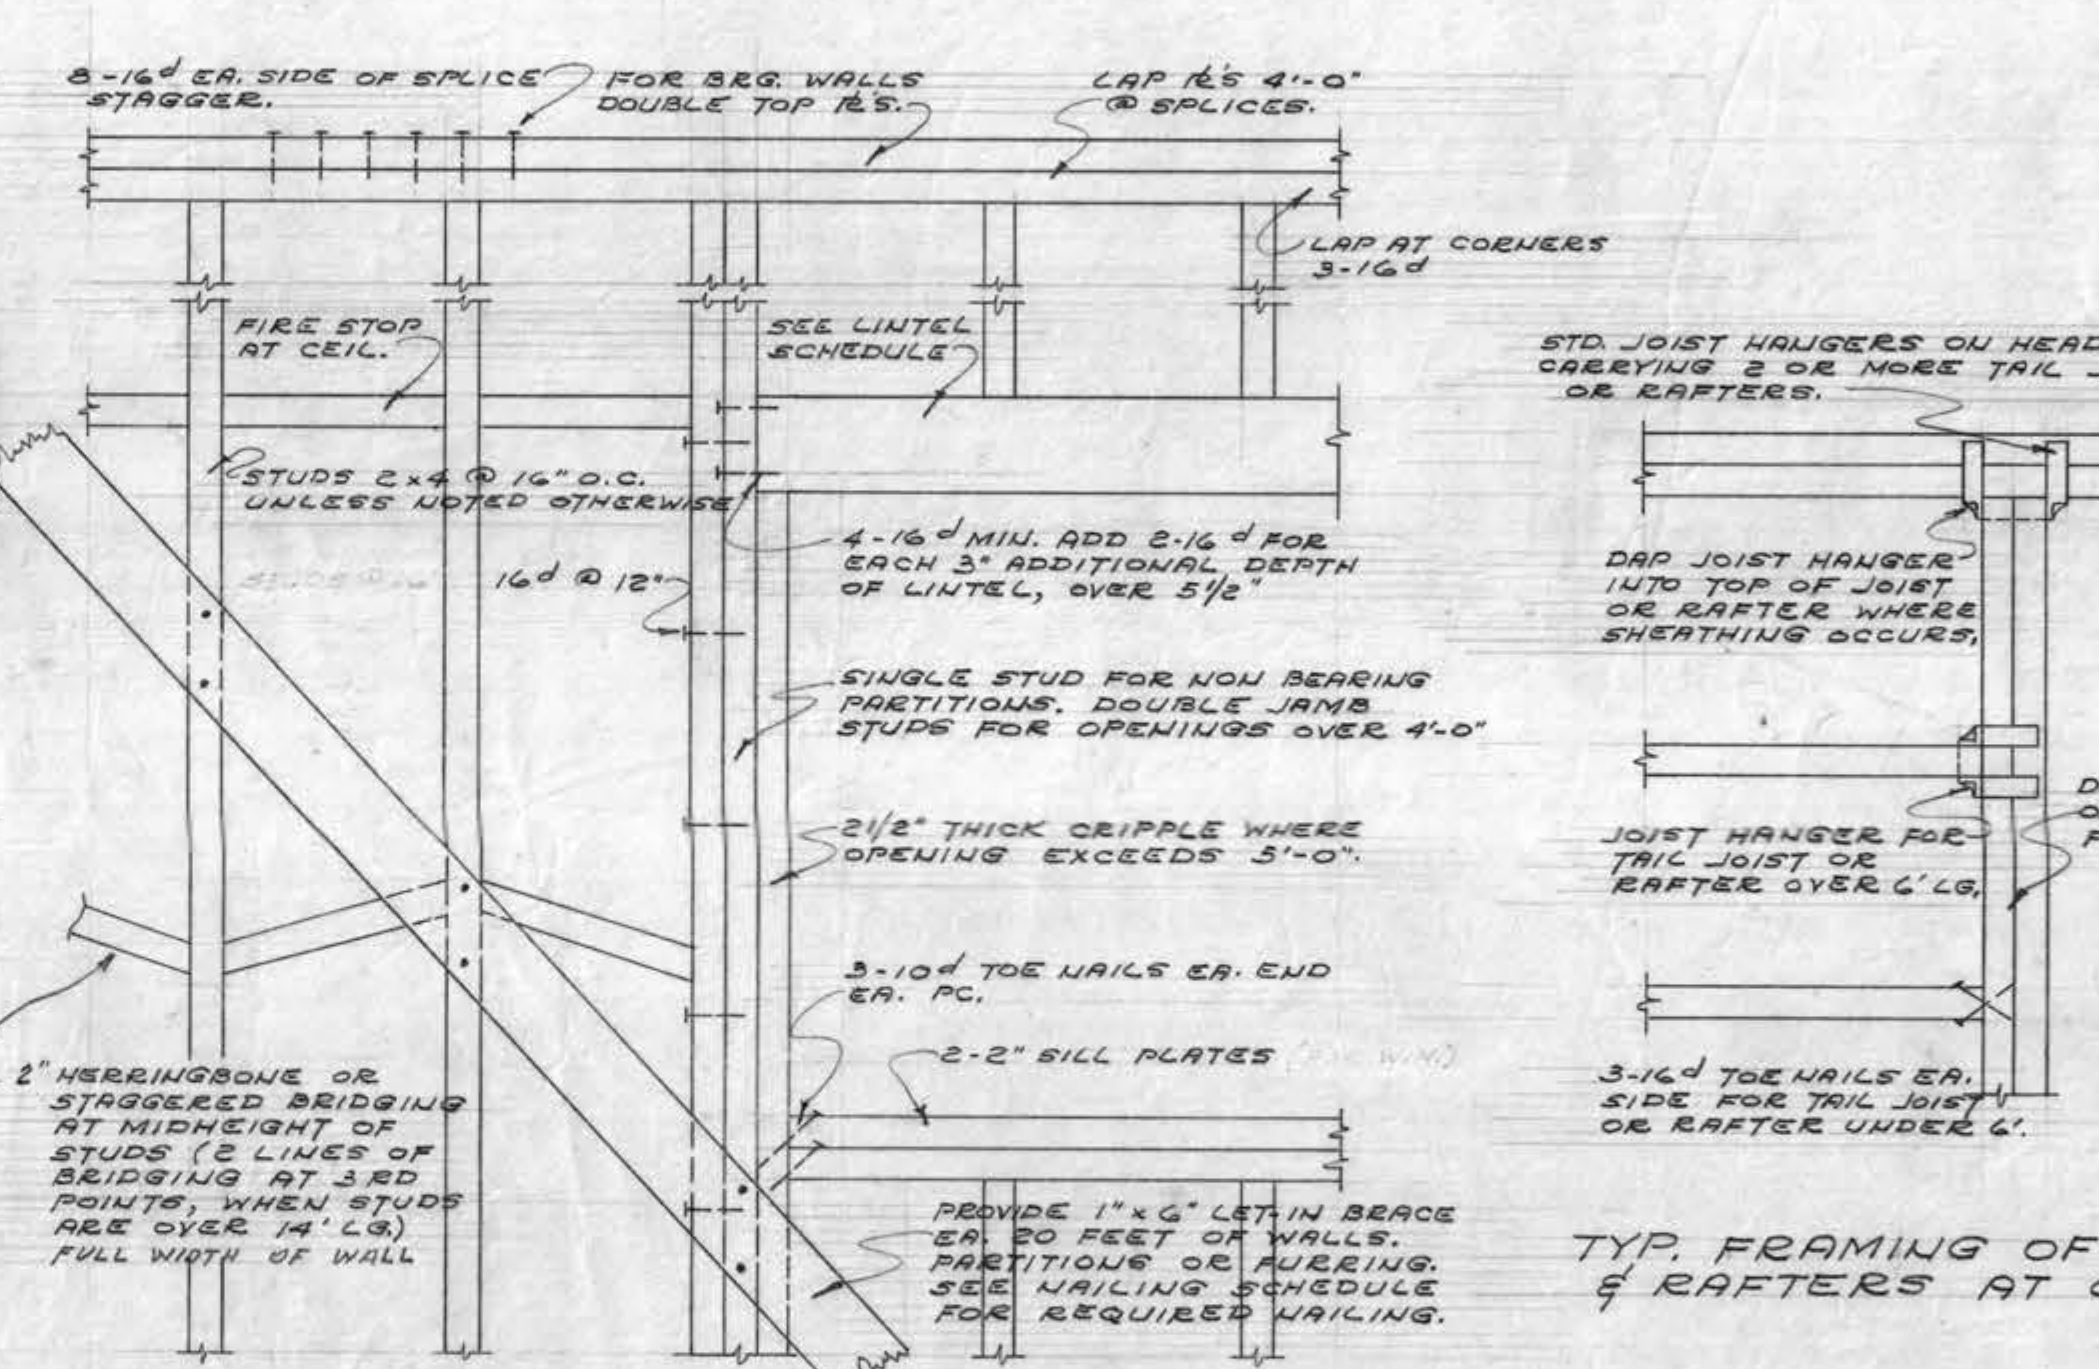 8-16d EA. SIDE OF SPLICE
STAGGER.
FOR BRG. WALLS
DOUBLE TOP PL'S.
LAP PL'S 4'-0"
@ SPLICES.
LAP AT CORNERS
3-16d
FIRE STOP
AT CEIL.
SEE LINTEL
SCHEDULE
STUDS 2x4 @ 16" O.C.
UNLESS NOTED OTHERWISE
16d @ 12"
4-16d MIN. ADD 2-16d FOR
EACH 3" ADDITIONAL DEPTH
OF LINTEL, OVER 5 1/2"
SINGLE STUD FOR NON BEARING
PARTITIONS. DOUBLE JAMB
STUDS FOR OPENINGS OVER 4'-0"
2 1/2" THICK CRIPPLE WHERE
OPENING EXCEEDS 5'-0".
3-10d TOE NAILS EA. END
EA. PC.
2-2" SILL PLATES
2" HERRINGBONE OR
STAGGERED BRIDGING
AT MIDHEIGHT OF
STUDS (2 LINES OF
BRIDGING AT 3RD
POINTS, WHEN STUDS
ARE OVER 14' LG.)
FULL WIDTH OF WALL
PROVIDE 1"x6" LET-IN BRACE
EA. 20 FEET OF WALLS.
PARTITIONS OR FURRING.
SEE NAILING SCHEDULE
FOR REQUIRED NAILING.
STD. JOIST HANGERS ON HEAD
CARRYING 2 OR MORE TAIL J
OR RAFTERS.
DAP JOIST HANGER
INTO TOP OF JOIST
OR RAFTER WHERE
SHEATHING OCCURS,
JOIST HANGER FOR
TAIL JOIST OR
RAFTER OVER 6' LG.
D
O
F
3-16d TOE NAILS EA.
SIDE FOR TAIL JOIST
OR RAFTER UNDER 6'.
TYP. FRAMING OF
& RAFTERS AT